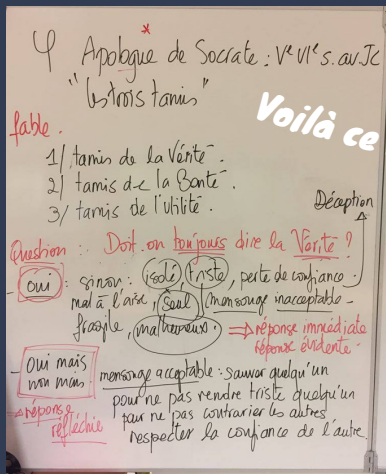 *
φ Apologue de Socrate : Ve VIe s. av. JC
"les trois tamis"
Voilà ce
fable.
1/ tamis de la Vérité.
2/ tamis de la Bonté.
3/ tamis de l'utilité.
Déception
Question : Doit-on toujours dire la Vérité ?
- oui : sinon : isolé, triste, perte de confiance
mal à l'aise, seul, mensonge inacceptable
fragile, malheureux. ⇒ réponse immédiate
réponse évidente.
- oui mais
non mais : mensonge acceptable : sauver quelqu'un
pour ne pas rendre triste quelqu'un
⇒ réponse
réfléchie
pour ne pas contrarier les autres
respecter la confiance de l'autre.